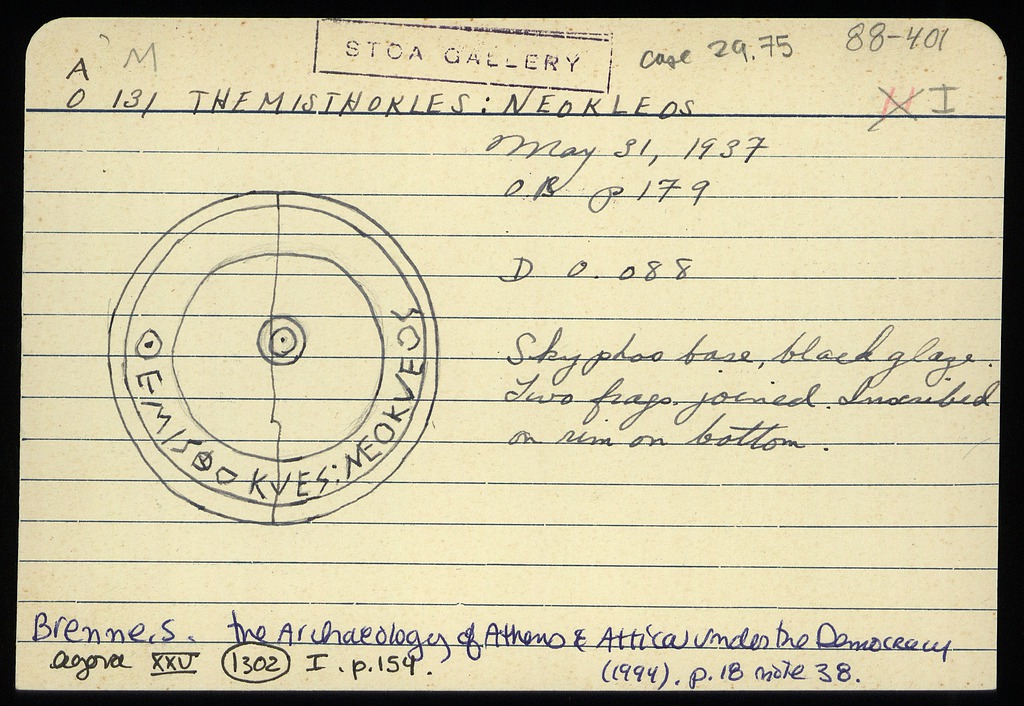 STOA GALLERY
case 29.75
88-401
A M
O 131 THEMISTHOKLES : NEOKLEOS
I
May 31, 1937
OB p 179
D 0.088
Skyphos base, black glaze.
Two frags. joined. Inscribed
on rim on bottom.
Brenne, S. the Archaeology of Athens & Attica under the Democracy
(1994). p. 18 note 38.
agora XXV 1302 I. p. 154.